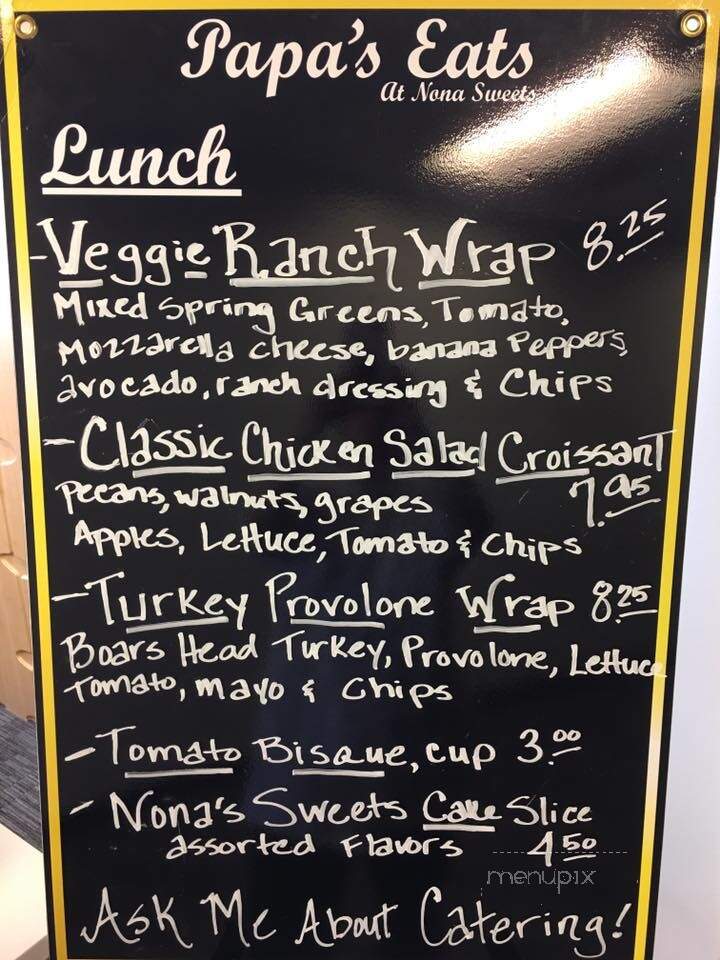 Papa's Eats
At Nona Sweets
Lunch
-Veggie Ranch Wrap 8.25
Mixed Spring Greens, Tomato,
Mozzarella cheese, banana Peppers,
avocado, ranch dressing & Chips
-Classic Chicken Salad Croissant
Pecans, walnuts, grapes 7.95
Apples, Lettuce, Tomato & Chips
-Turkey Provolone Wrap 8.25
Boars Head Turkey, Provolone, Lettuce
Tomato, mayo & Chips
-Tomato Bisque, cup 3.00
-Nona's Sweets Cake Slice
assorted Flavors 4.50
menupix
Ask Me About Catering!